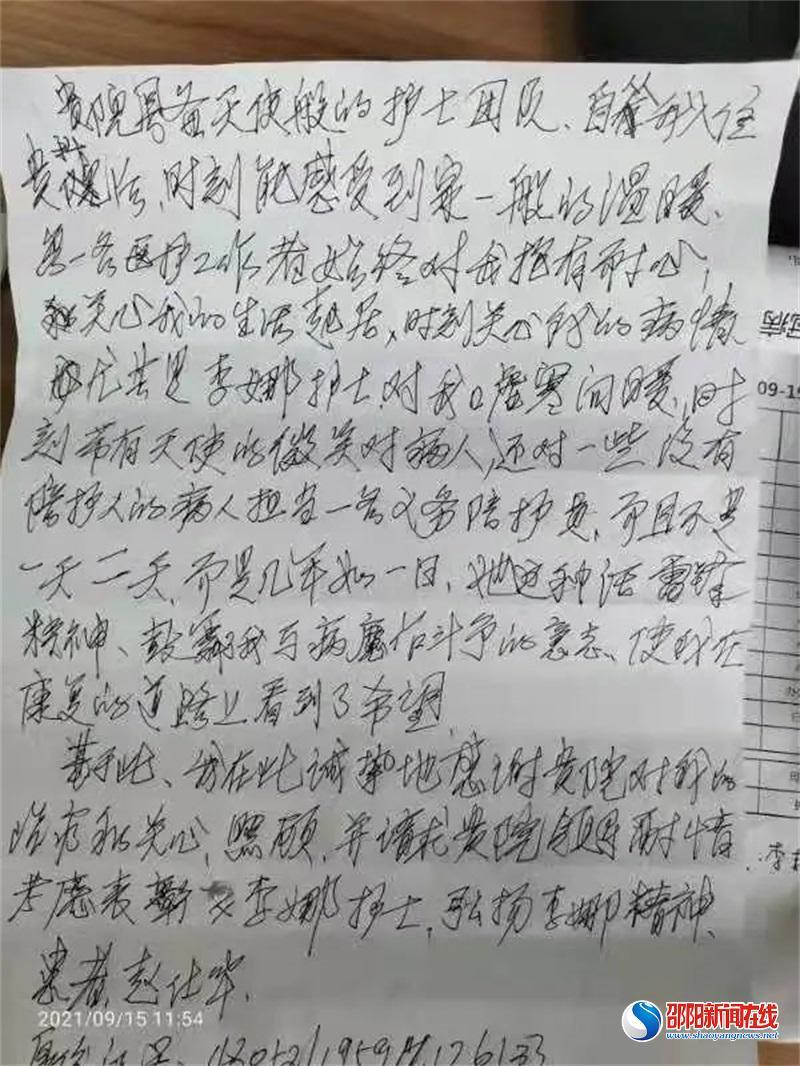 贵院具备天使般的护士团队、自我住
贵院后,时刻能感受到家一般的温暖、
每一名医护工作者始终对我抱有耐心,
和关心我的生活起居、时刻关心我的病情
尤其是李娜护士,对我嘘寒问暖,时
刻带有天使的微笑对病人,还对一些没有
陪护人的病人担当一名义务陪护员,而且不是
一天二天,而是几年如一日、她这种活雷锋
精神、鼓舞我与病魔作斗争的意志、使我在
康复的道路上看到了希望
基于此、我在此诚挚地感谢贵院对我的
治疗和关心,照顾,并请求贵院领导酌情
考虑表彰李娜护士,弘扬李娜精神、
患者,赵仕华.
2021/09/15 11:54
邵阳新闻在线
www.shaoyangnews.net
冠病
09-19
李